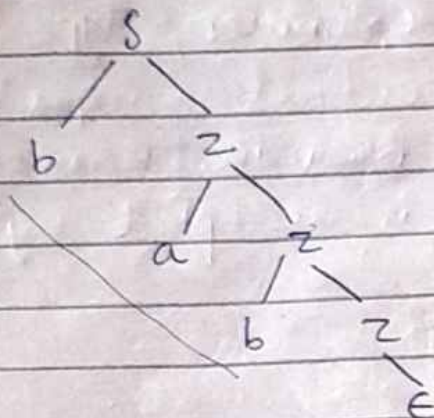 S
b z
a z
b z
ϵ